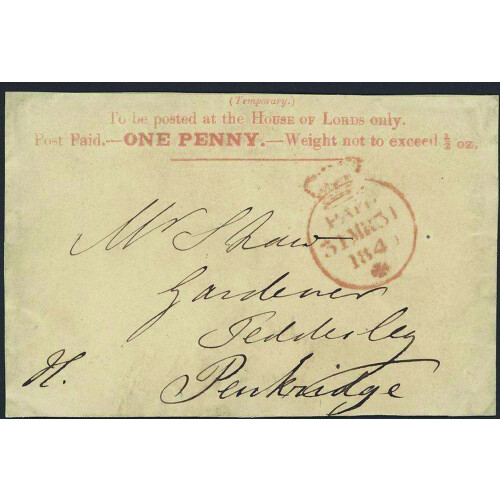 (Temporary.)
To be posted at the House of Lords only.
Post Paid.—ONE PENNY.—Weight not to exceed ½ oz.
PAID
31 MR 31
1840
Mr Shaw
Gardener
Teddesley
H. Penkridge